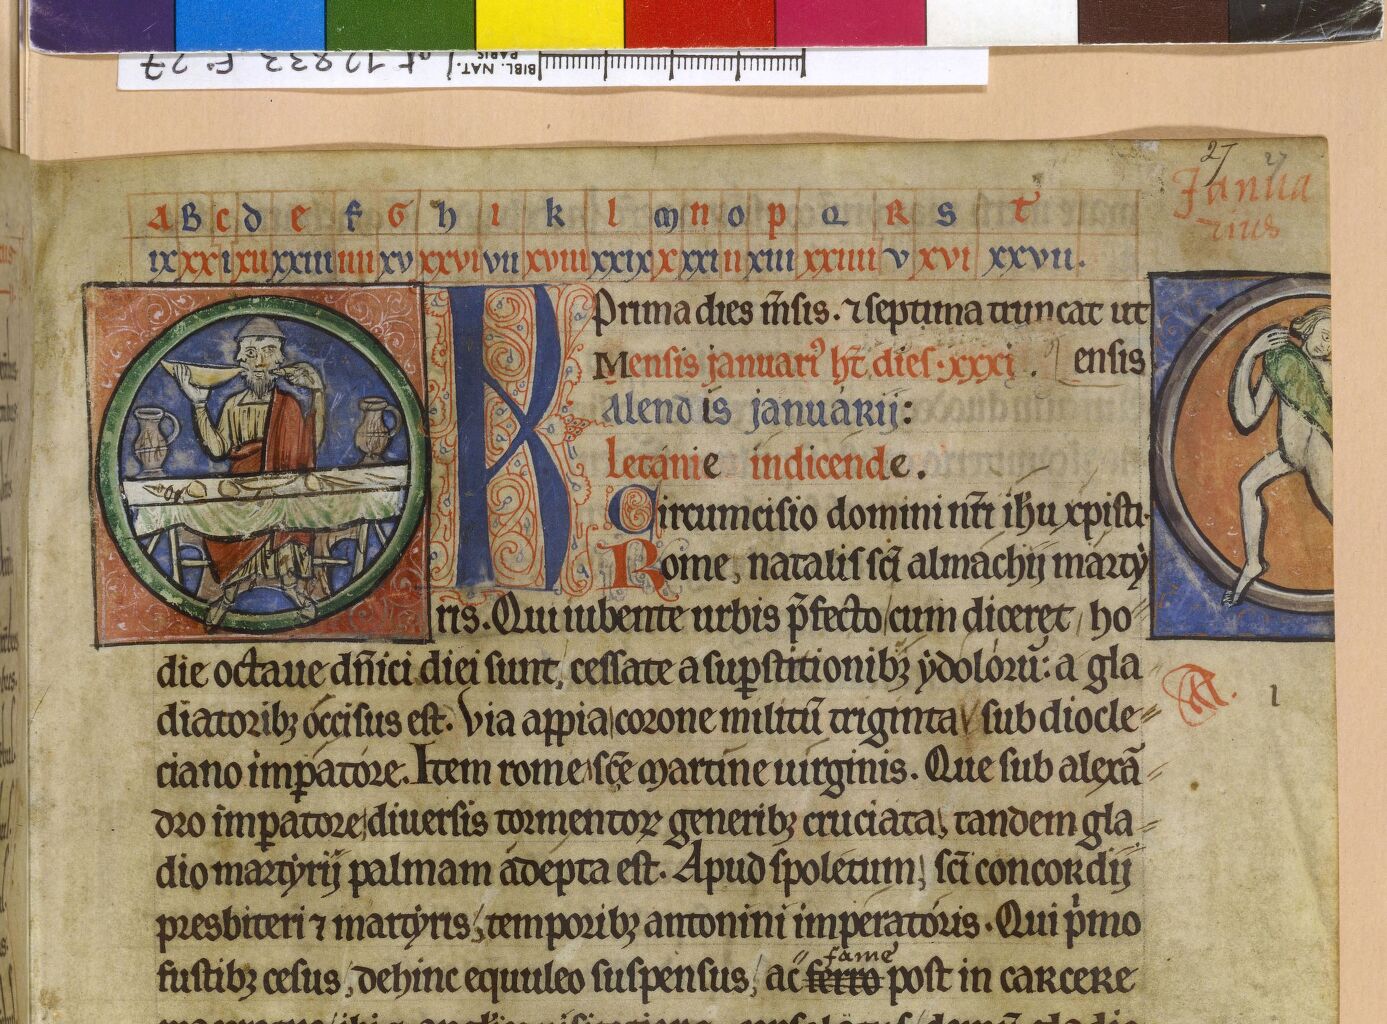 BIBL. NAT. PARIS
lat 12833 F. 27
27
27
Janua
rius
A B C D E F G H I K L M N O P Q R S T
ix xx i xii xxiii iiii xv xxvi vii xviii xxix x xxi ii xiii xxiiii v xvi xxvii.
Prima dies m̄sis. ⁊ septima truncat ut
Mensis januarꝰ h̄t dies·xxxi. ensis
Kalendis januarij:
Letanie indicende.
Circumcisio domini nr̄i ih̄u xpisti.
Rome, natalis sc̄i almachij martẏ
ris. Qui iubente urbis p̄fecto cum diceret, ho
die octaue dn̄ici diei sunt, cessate a suꝑstitionibꝫ ẏdolorū: a gla
diatoribꝫ occisus est. Via appia corone militū triginta sub diocle
ciano imꝑatore. Item rome sc̄e martine uirginis. Que sub alexā
dro imꝑatore diuersis tormentoꝝ generibꝫ cruciata, tandem gla
dio martẏrij palmam adepta est. Apud spoletum, sc̄i concordij
presbiteri ⁊ martẏris, temporibꝫ antonini imperatoris. Qui p̓mo
fustibꝫ cesus, dehinc equuleo suspensus, ac ferro fame post in carcere
A.
1